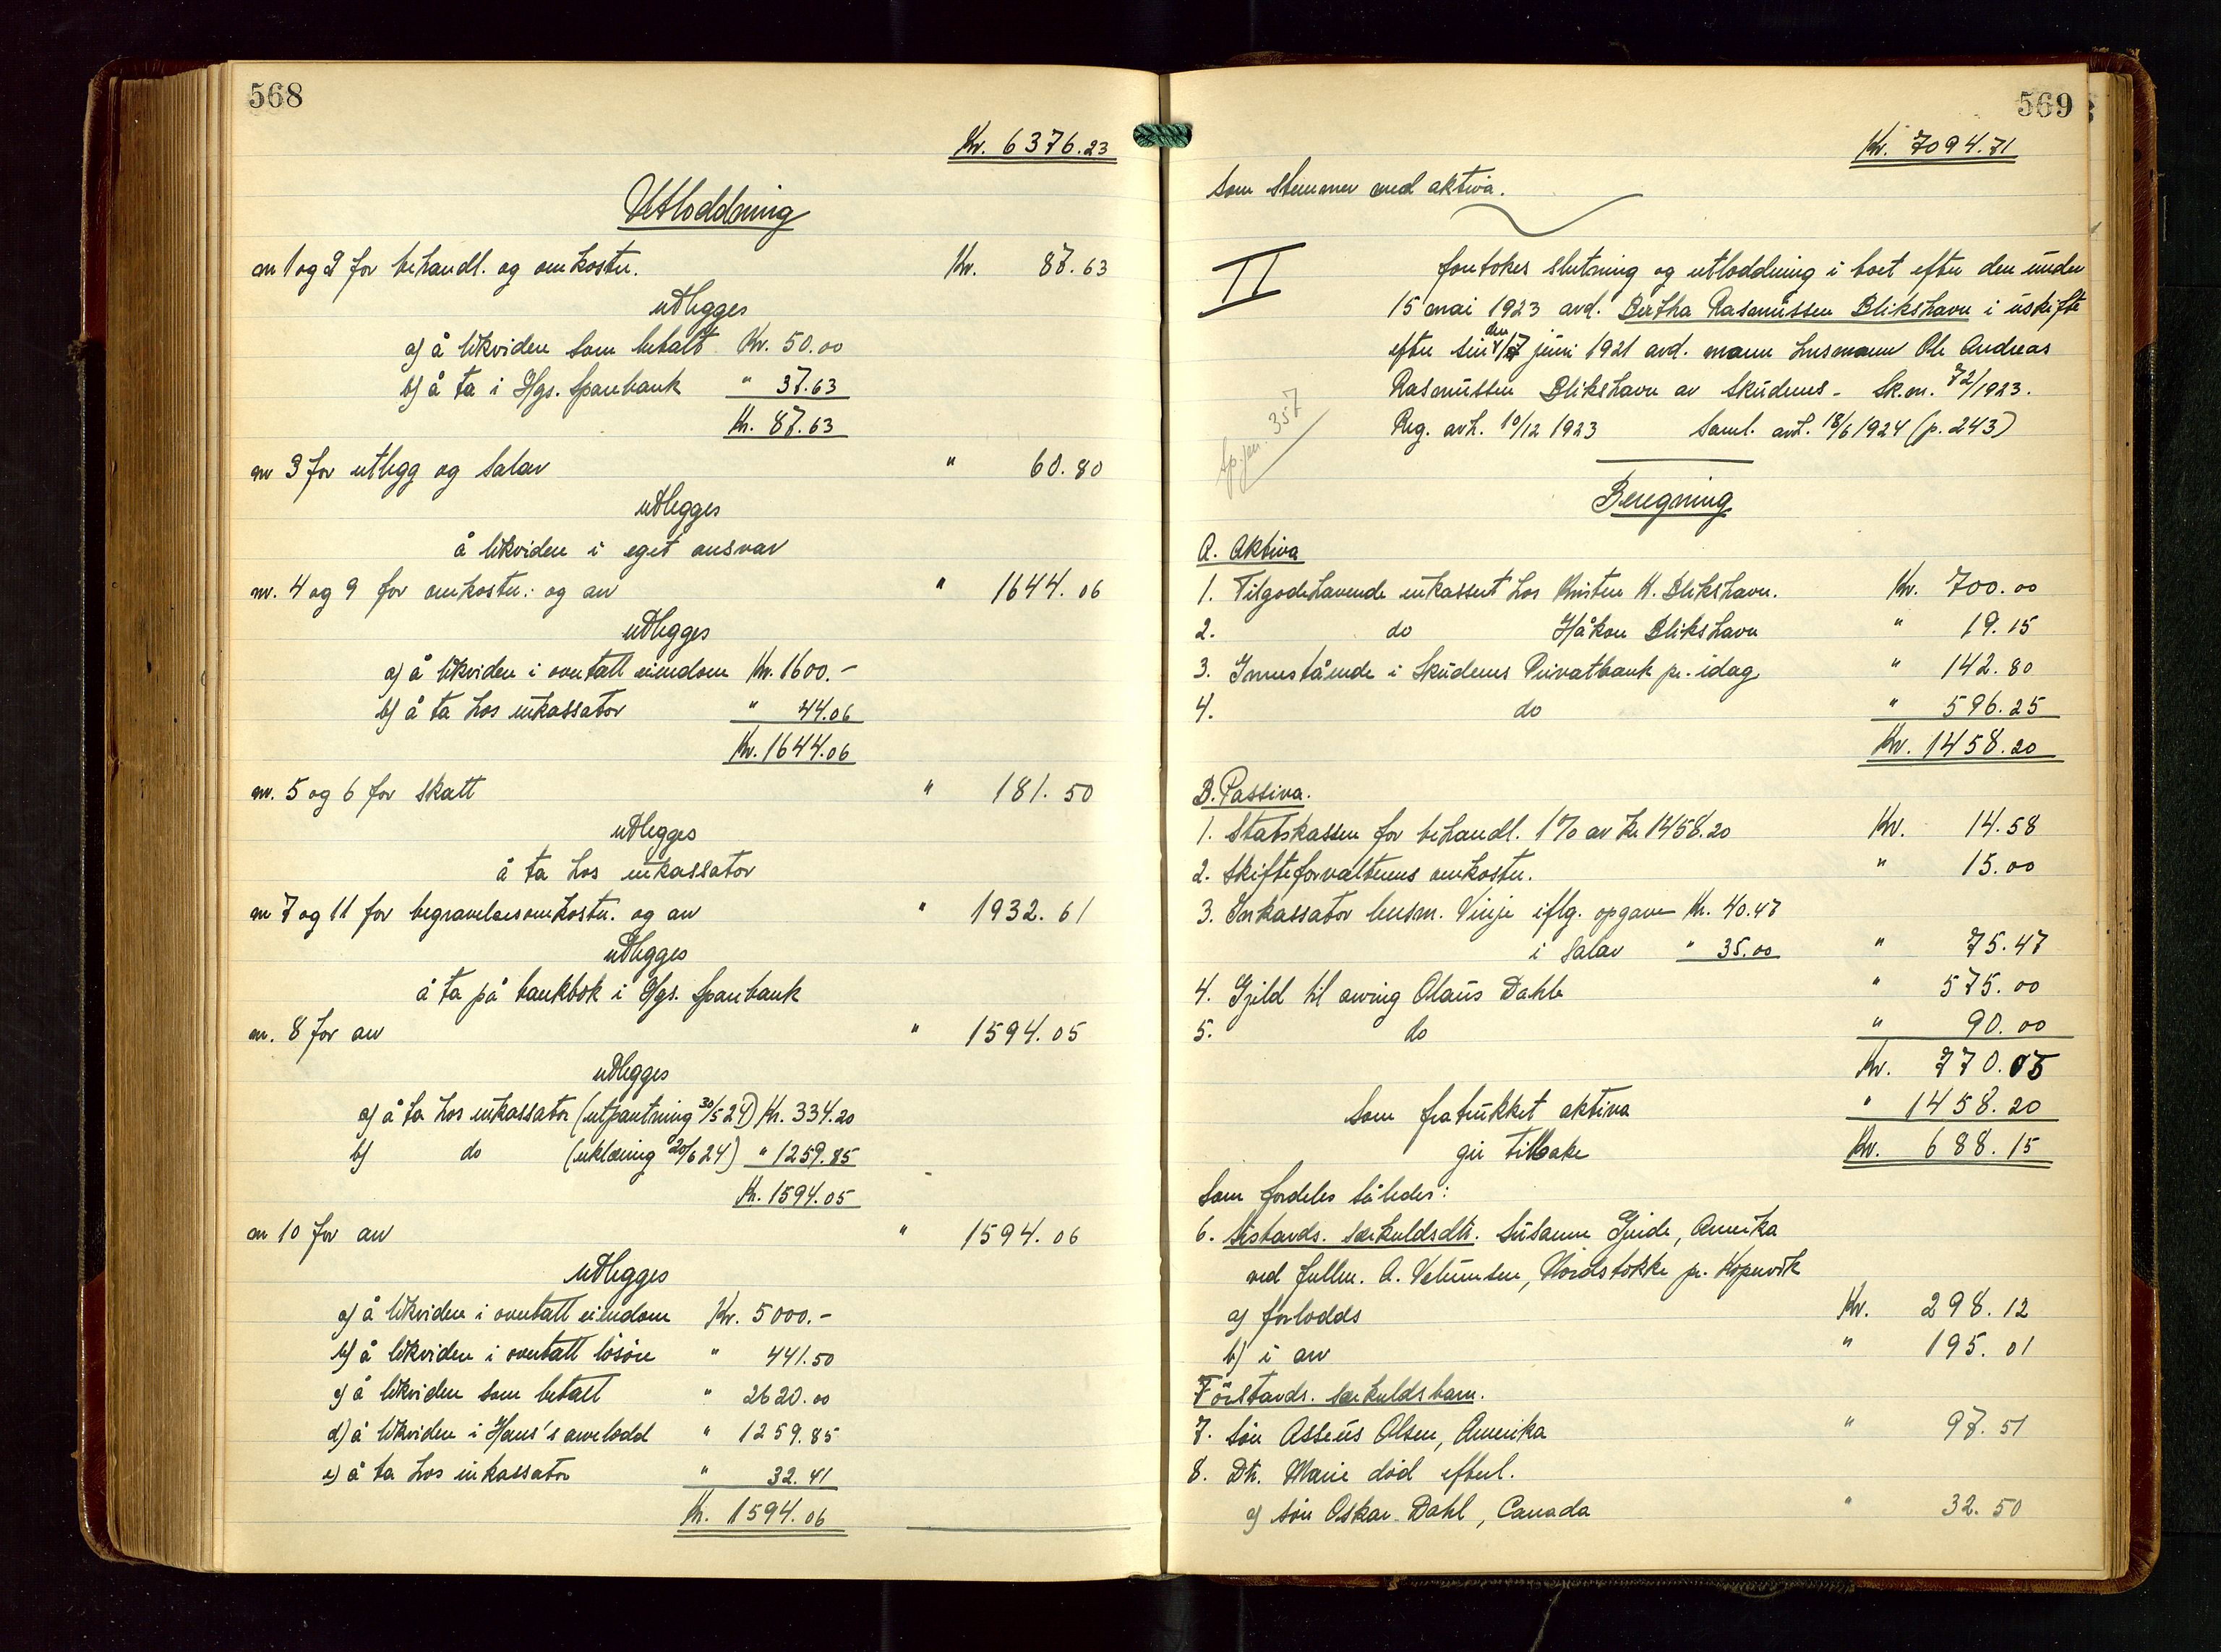 568
Kr. 6376.23
Utloddning
nr 1 og 2 for behandl. og omkostn. Kr. 87.63
utlegges
a) å likviden som betalt Kr. 50.00
b) å ta i Hgs. Sparebank " 37.63
Kr. 87.63
nr 3 for utlegg og salær " 60.80
utlegges
å likviden i eget ansvar
nr. 4 og 9 for omkostn. og arv " 1644.06
utlegges
a) å likviden i overtatt eiendom Kr. 1600.-
b) å ta hos inkassator " 44.06
Kr. 1644.06
nr. 5 og 6 for skatt " 181.50
utlegges
å ta hos inkassator
nr 7 og 11 for begravelsesomkostn. og arv " 1932.61
utlegges
å ta på bankbok i Hgs. Sparebank
nr. 8 for arv " 1594.05
utlegges
a) å ta hos inkassator (utpantning 30/5 24) Kr. 334.20
b) do 20/6 24) " 1259.85
Kr. 1594.05
nr 10 for arv " 1594.06
utlegges
a) å likviden i overtatt eiendom Kr. 5000.-
b) å likviden i overtatt lösöre " 441.50
c) å likviden som betalt " 2620.00
d) å likviden i Hans's arvelodd " 1259.85
e) å ta hos inkassator " 32.41
Kr. 1594.06
569
Kr. 7094.71
som stemmer med aktiva.
II foretokes slutning og utloddning i boet efter den under
15 mai 1923 avd. Bertha Rasmussen Blikshavn i uskifte
efter sin den juni 1921 avd. mann husmann Ole Andreas
Rasmussen Blikshavn av Skudenes - Sk.nr. 72/1923.
Reg. avh. 10/12 1923 Saml. avh. 18/6 1924 (p. 243)
357
Beregning
A. Aktiva
1. Tilgodehavende inkassert hos Kristen K. Blikshavn. Kr. 700.00
2. do Håkon Blikshavn " 19.15
3. Innestående i Skudenes Privatbank pr. idag " 142.80
4. do " 596.25
Kr. 1458.20
B. Passiva.
1. Statskassen for behandl. 1% av kr 1458.20 Kr. 14.58
2. Skifteforvalterens omkostn. " 15.00
3. Inkassator lensm. Vinje iflg. opgave Kr. 40.47
i salær " 35.00 " 75.47
4. Gjeld til arving Olaus Dahle " 575.00
5. do " 90.00
Kr. 770.05
som fratrukket aktiva " 1458.20
gir tilbake Kr. 688.15
som fordeles således:
6. Sistavds. særkuldsdtr. Susanne Gjeide, Amerika
ved fullm. A. Velumsen, Nordstokke pr. Kopervik
a) forlodds Kr. 298.12
b) i arv " 195.01
Förstavds. særkuldsbarn.
7. Sön Asseus Olsen, Amerika " 97.51
8. Dtr. Marie död efterl.
a) sön Oskar Dahl, Canada " 32.50